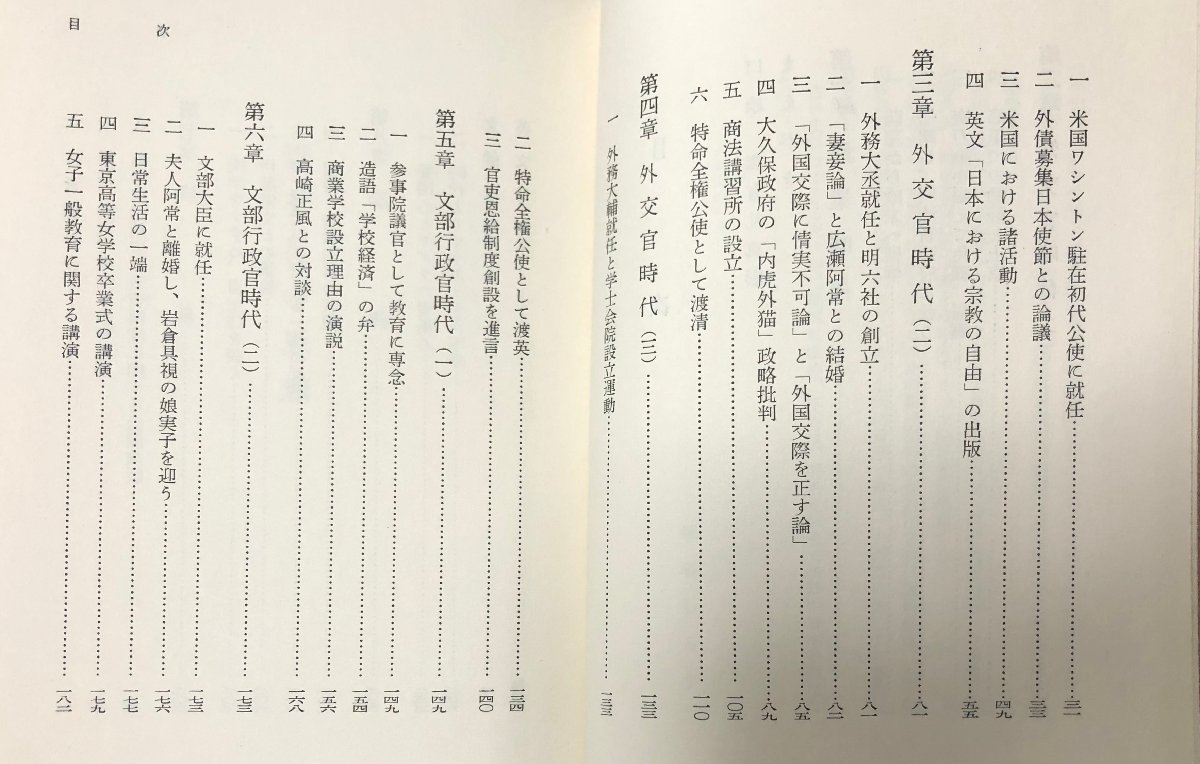 一 米国ワシントン駐在初代公使に就任……三一
二 外債募集日本使節との論議……三三
三 米国における諸活動……四九
四 英文「日本における宗教の自由」の出版……五五
第三章 外交官時代(二)……八一
一 外務大丞就任と明六社の創立……八一
二 「妻妾論」と広瀬阿常との結婚……八二
三 「外国交際に情実不可論」と「外国交際を正す論」……八五
四 大久保政府の「内虎外猫」政略批判……八九
五 商法講習所の設立……一〇五
六 特命全権公使として渡清……一一〇
第四章 外交官時代(三)……一三三
一 外務大輔就任と学士会院設立運動……一三三
二 特命全権公使として渡英……一三四
三 官吏恩給制度創設を進言……一四〇
第五章 文部行政官時代(一)……一四九
一 参事院議官として教育に専念……一四九
二 造語「学校経済」の弁……一五四
三 商業学校設立理由の演説……一五六
四 高崎正風との対談……一六八
第六章 文部行政官時代(二)……一七三
一 文部大臣に就任……一七三
二 夫人阿常と離婚し、岩倉具視の娘実子を迎う……一七六
三 日常生活の一端……一七七
四 東京高等女学校卒業式の講演……一七九
五 女子一般教育に関する講演……一八二
目次